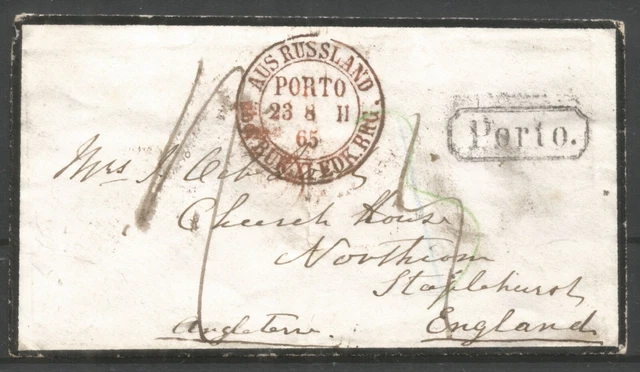 AUS RUSSLAND
PORTO
23 8 II
65
Porto.
Mrs
Church House
Northiam
Staplehurst
Angleterre.
England